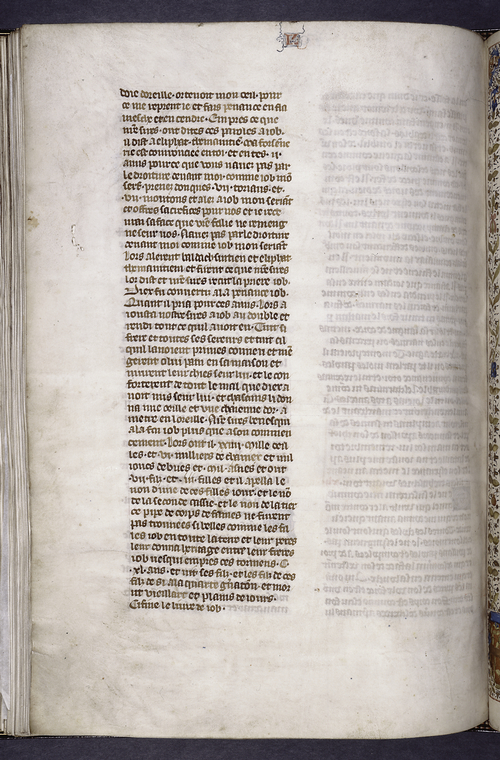 doie doreille · or te voit mon oeil · pour
ce me reprent ie et fais penance en fla
mesche et en cendre · Empres ce que
nr̃e sires ont dites ces paroles a iob ·
il dist a eliphat · themanite · ma forsene
rie est couroucee en toi · et en tes · ii ·
amis pource que vous naues pas par
le droiture deuant moi · comme iob mõ
sers · prenes donques · vii · toriaus · et ·
vii · moutons et ales a iob mon seriãt
et offres sacrefices pour vos et ie rece
urai sa face que vr̃e folie ne
ne soit vos · naues pas parle droiture
deuant moi comme iob mon seriãt
lors alerent baldach suitien et eliphat
themanitien et firent ce que nr̃e sires
lor dist et nr̃e sires recut la priere iob ·
Diex fu conuerti a la penance iob ·
Quant il pria pour ces amis · lors a
iousta nostre sires a iob au double et
rendi tout ce quil auoit eu · Tuit si
frere et toutes ses sereurs et tuit cil
quil lauoient primes conneu et mẽ
gerent o lui pain en sa maison et
murent leur chies seur lui · et le con
forterent de tout le mal que diex a
uoit mis seur lui · et chascuns li don
na une oeille et vne daienne dor · a
metre en loreille · Nr̃e sires benesqui
a la fin iob plus que a son commen
cement · lors ont il · xiiii · mille oeil
les · et · vi · milliers de chamex et mil
ioues de bues et · mil · asnes et ont
· vii · fils · et · iii · filles et il apella le
non dune de ces filles iour · et le nõ
de la seconde cassie · et le non de la tier
ce pipe de corps de fames ne furent
pas trouuees si belles comme les fil
les iob en toute la terre et leur peres
leur donna heritage entre leur freres
iob vesqui empres ces tormens · C ·
· xl · ans · et vit ses filz · et les filz de ces
filz de si a la quarte gñacion · et mor
ut vieillart et plains de iours ·
Ci fine le liure de iob ·